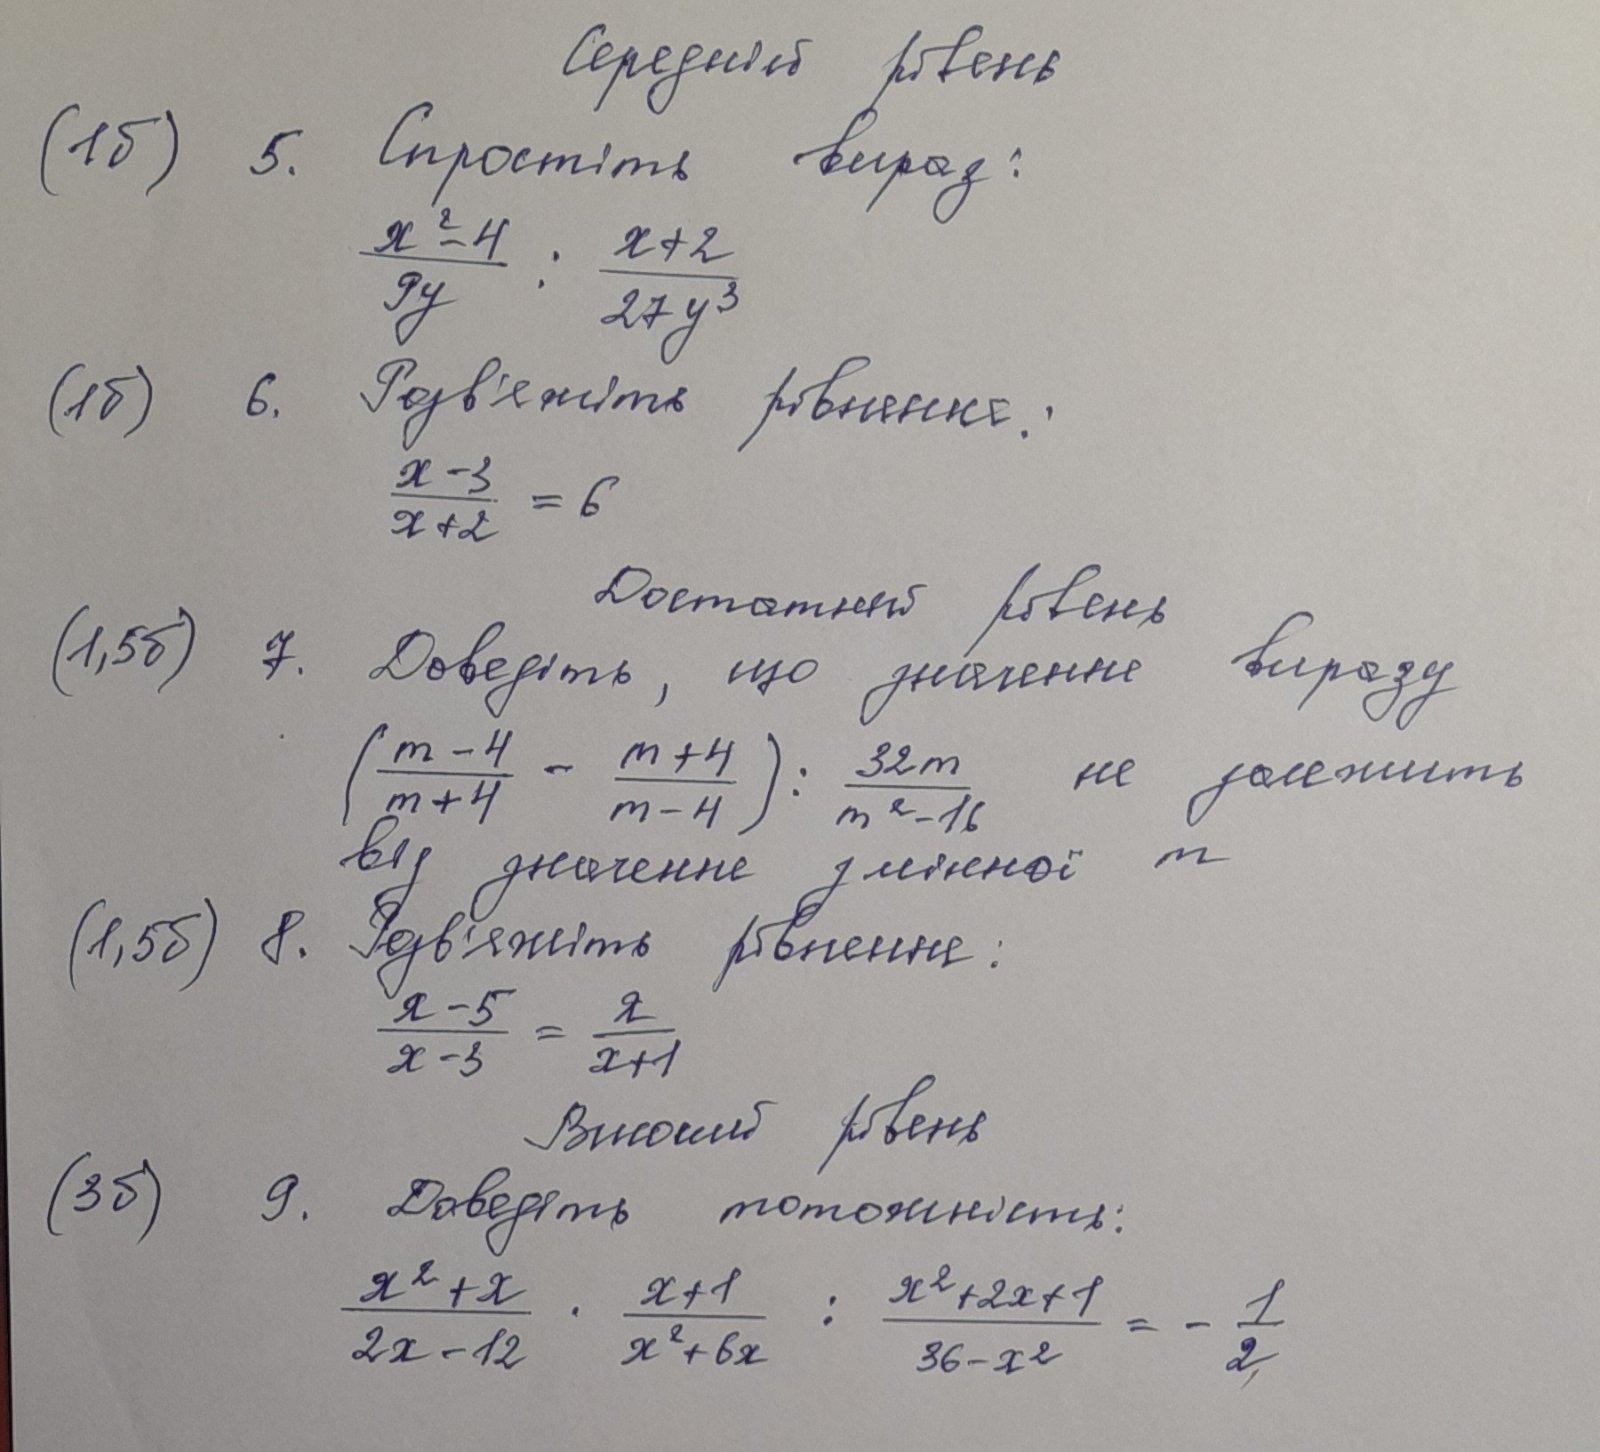 Середній рівень
(1б) 5. Спростіть вираз:
x²-4/9y : x+2/27y³
(1б) 6. Розв'яжіть рівняння:
x-3/x+2 = 6
Достатній рівень
(1,5б) 7. Доведіть, що значення виразу
(m-4/m+4 - m+4/m-4) : 32m/m²-16 не залежить
від значення змінної m
(1,5б) 8. Розв'яжіть рівняння:
x-5/x-3 = x/x+1
Високий рівень
(3б) 9. Доведіть тотожність:
x²+x/2x-12 · x+1/x²+6x : x²+2x+1/36-x² = -1/2